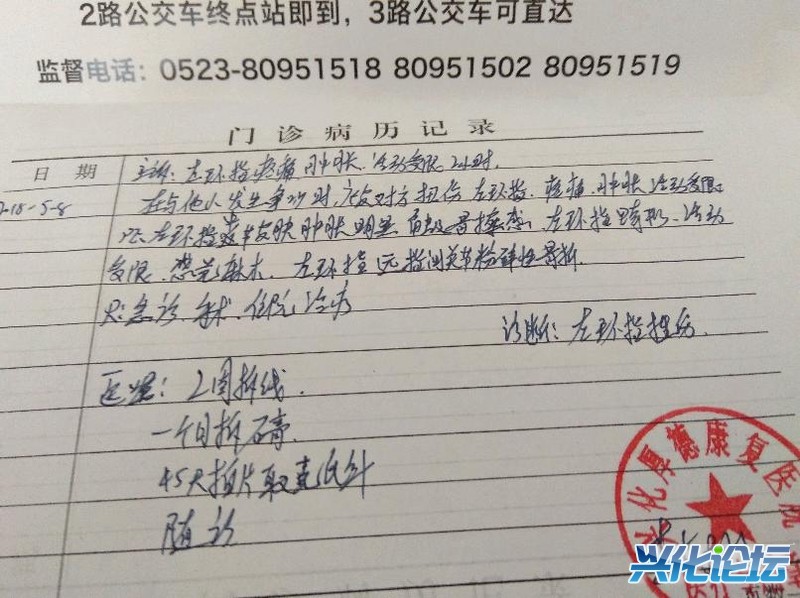 2路公交车终点站即到，3路公交车可直达
监督电话：0523-80951518 80951502 80951519
门诊病历记录
日期
主诉：左环指疼痛肿胀、活动受限2小时.
18-5-8
在与他人发生争吵时，被对方扭伤左环指、疼痛、肿胀活动受限
左环指 皮肤肿胀明显 骨擦感、左环指畸形、活动
受限、感觉麻木、左环指远指间关节粉碎性骨折
急诊、手术、住院治疗
诊断：左环指挫伤
医嘱：2周拆线.
一个月拆石膏.
45天拍片取克氏针
随诊
兴化厚德康复医院
兴化论坛